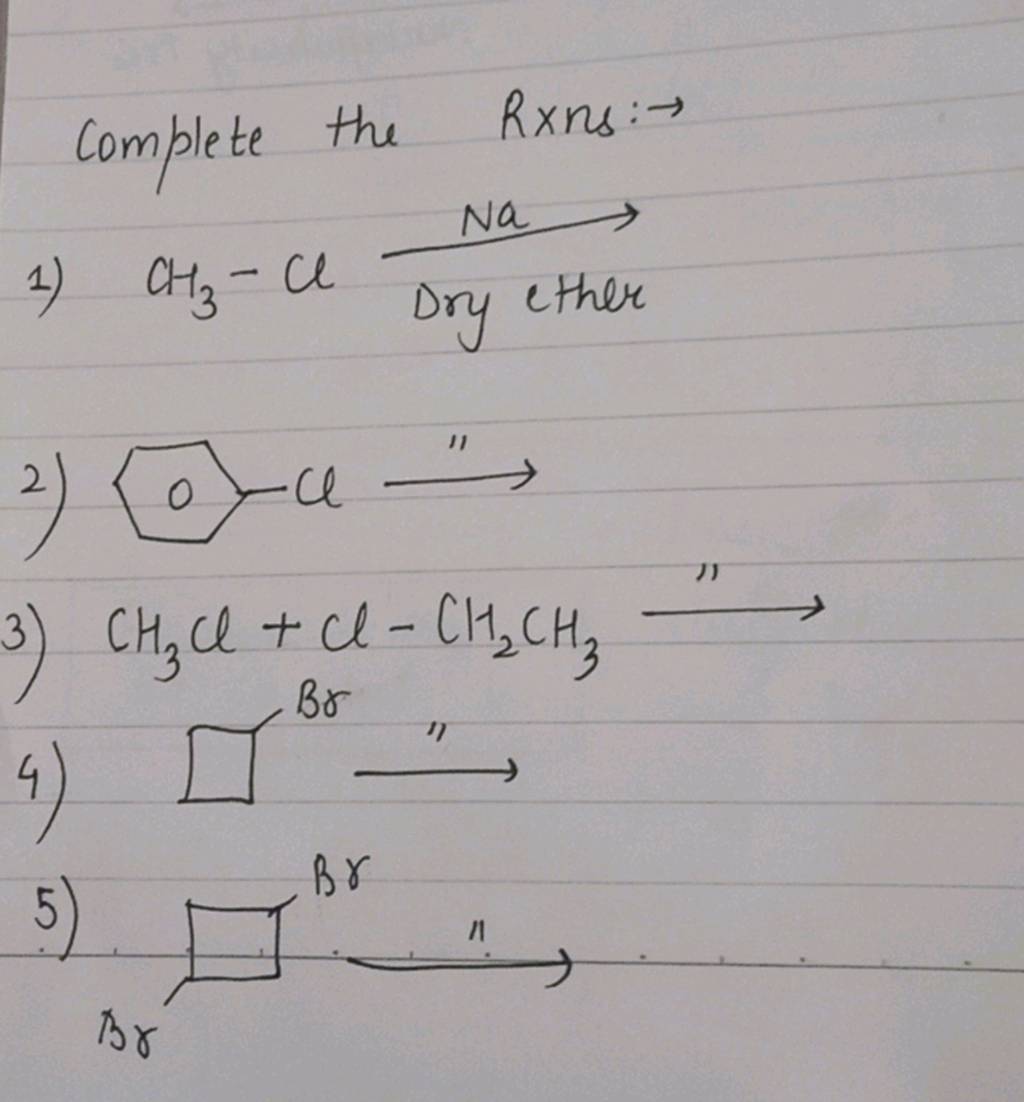 Complete the Rxns:→
1) CH₃ - Cl Na →
Dry ether
2) O -Cl " →
3) CH₃Cl + Cl - CH₂CH₃ " →
4) Br " →
5) Br " →
Br